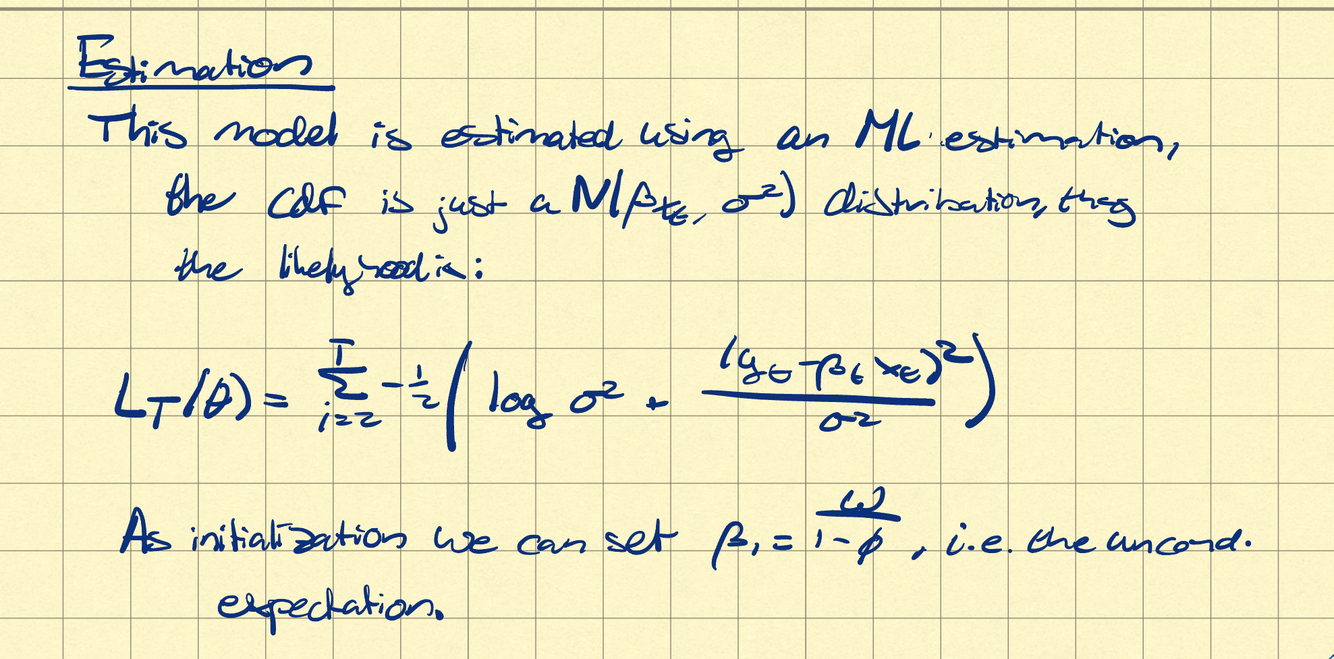 Estimation
This model is estimated using an ML estimation,
the cdf is just a N(βx_t, σ²) distribution, thus
the likelyhood is:
L_T(θ) = Σ_{i=2}^{T} -1/2 ( log σ² + (y_t - β_t x_t)² / σ² )
As initialization we can set β₁ = ω / (1 - φ), i.e. the uncond.
expectation.